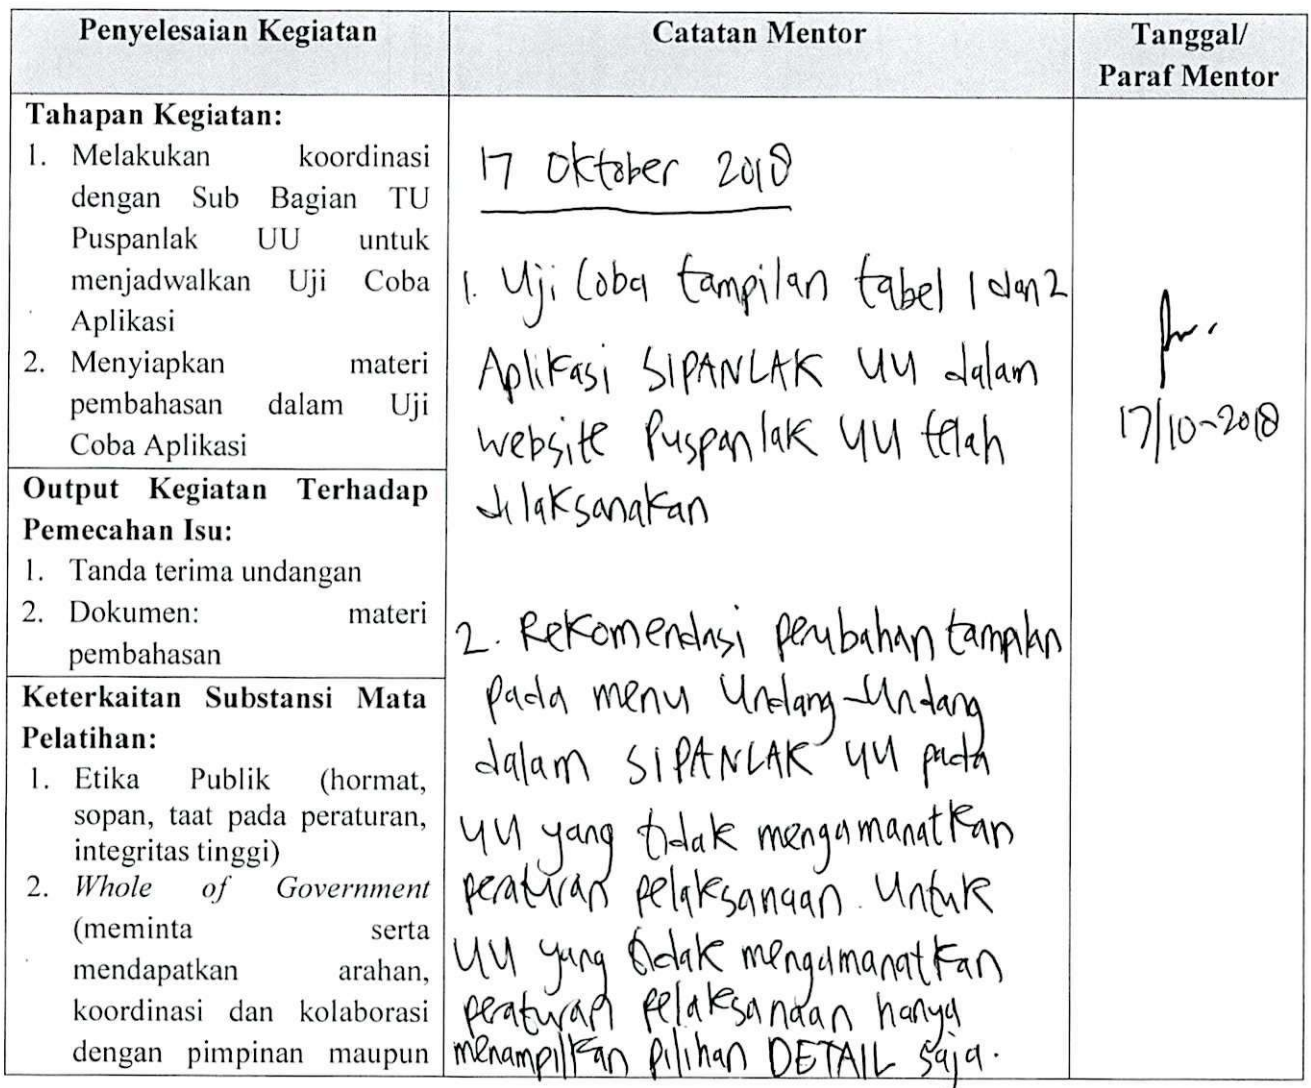 Penyelesaian Kegiatan
Catatan Mentor
Tanggal/
Paraf Mentor
Tahapan Kegiatan:
1. Melakukan koordinasi
dengan Sub Bagian TU
Puspanlak UU untuk
menjadwalkan Uji Coba
Aplikasi
2. Menyiapkan materi
pembahasan dalam Uji
Coba Aplikasi
Output Kegiatan Terhadap
Pemecahan Isu:
1. Tanda terima undangan
2. Dokumen: materi
pembahasan
Keterkaitan Substansi Mata
Pelatihan:
1. Etika Publik (hormat,
sopan, taat pada peraturan,
integritas tinggi)
2. Whole of Government
(meminta serta
mendapatkan arahan,
koordinasi dan kolaborasi
dengan pimpinan maupun
17 Oktober 2018
1. Uji Coba tampilan tabel 1 dan 2
Aplikasi SIPANLAK UU dalam
website Puspanlak UU telah
dilaksanakan
2. Rekomendasi perubahan tampilan
pada menu Undang-Undang
dalam SIPANLAK UU pada
UU yang tidak mengamanatkan
peraturan pelaksanaan. Untuk
UU yang tidak mengamanatkan
peraturan pelaksanaan hanya
menampilkan pilihan DETAIL saja.
17/10-2018